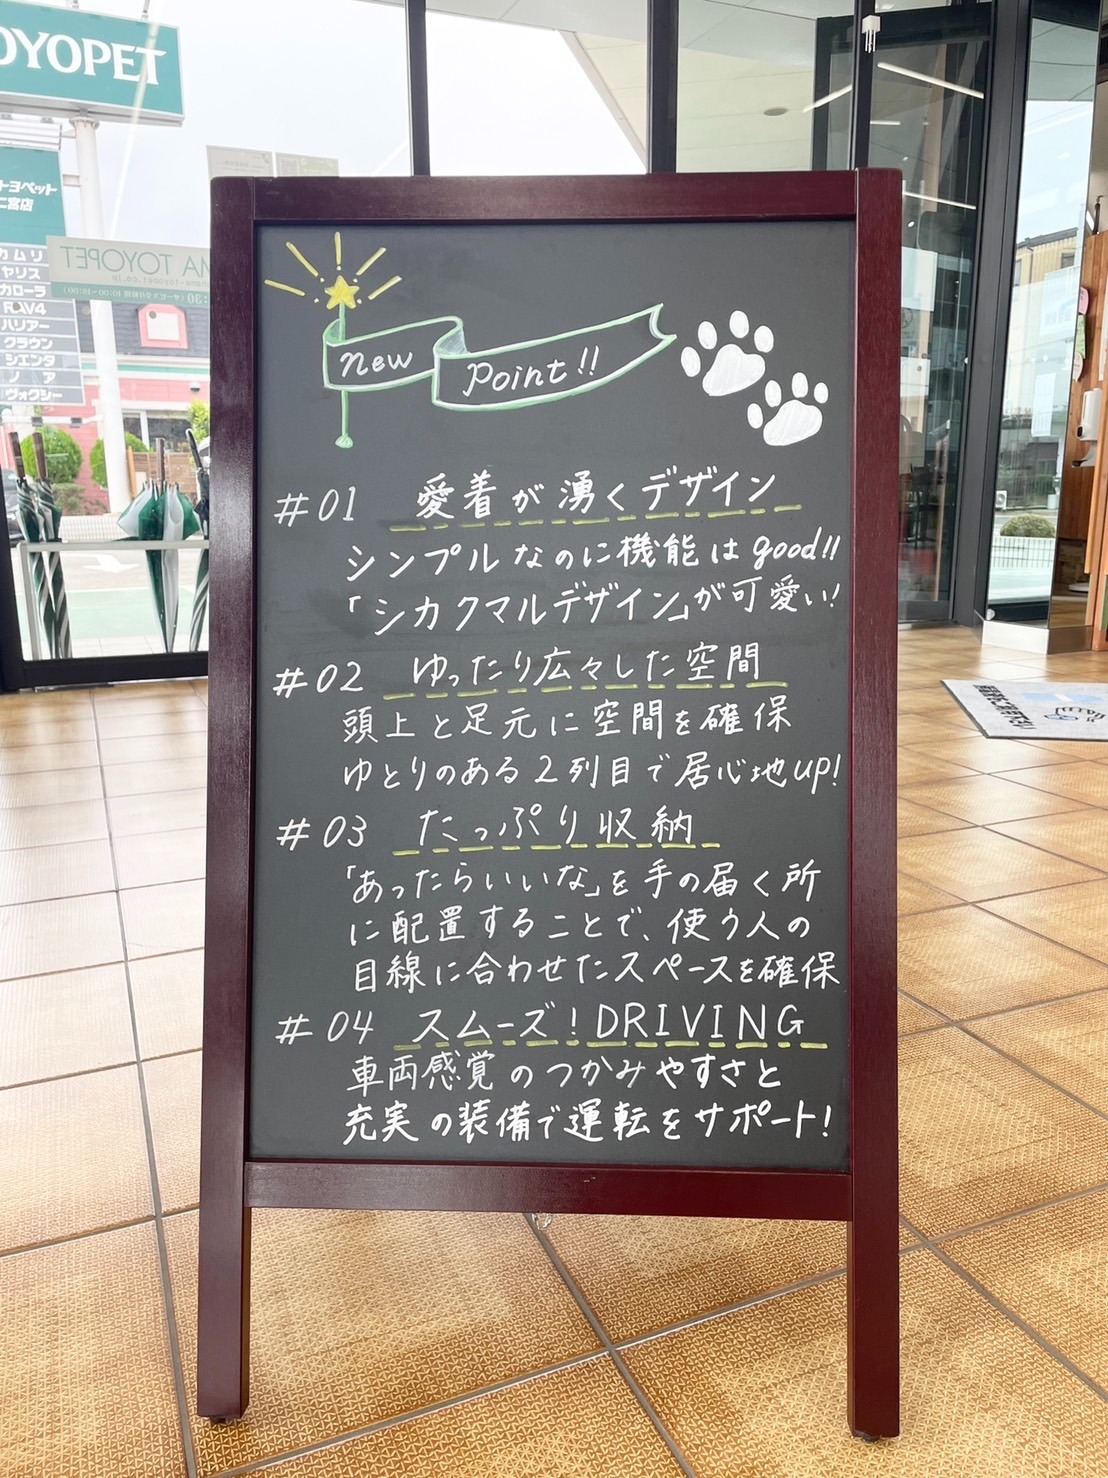 TOYOPET
トヨペット
二宮店
カムリ
ヤリス
カローラ
RAV4
ハリアー
クラウン
シエンタ
ノア
ヴォクシー
MA TOYOPET
New Point!!
#01 愛着が湧くデザイン
シンプルなのに機能はgood!!
「シカクマルデザイン」が可愛い!
#02 ゆったり広々した空間
頭上と足元に空間を確保
ゆとりのある2列目で居心地up!
#03 たっぷり収納
「あったらいいな」を手の届く所
に配置することで、使う人の
目線に合わせたスペースを確保
#04 スムーズ!DRIVING
車両感覚のつかみやすさと
充実の装備で運転をサポート!